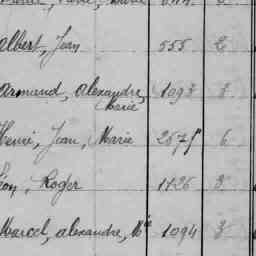 Albert, Jean 555 2
Armand, Alexandre, 1093 3
Marie
Henri, Jean, Marie 2675 6
Léon, Roger 1126 3
Marcel, Alexandre, Mie 1094 3